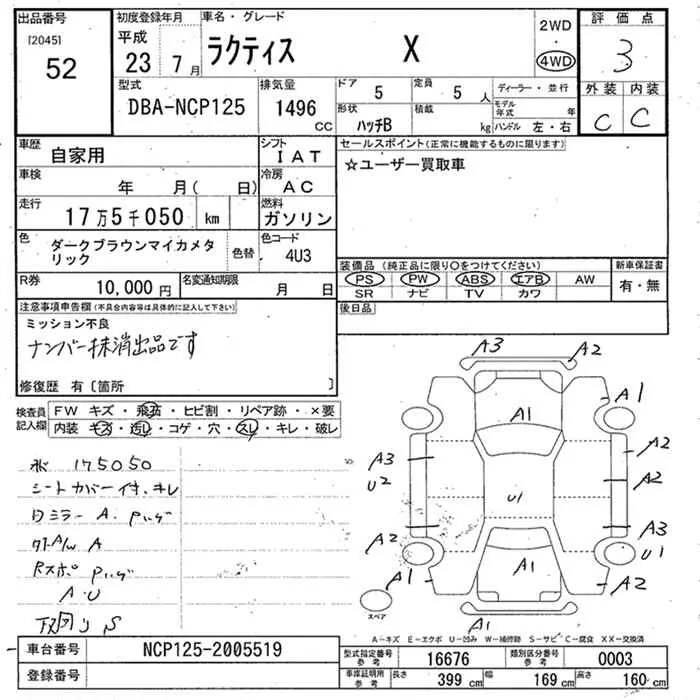 出品番号
[2045]
52
初度登録年月
平成
23 7月
車名・グレード
ラクティス X
2WD
4WD
評価点
3
外装 内装
C C
型式
DBA-NCP125
排気量
1496 CC
ドア 5
定員 5 人
形状 ハッチB
積載 kg
ディーラー・並行
モデル年式 年
ハンドル 左・右
車歴
自家用
シフト
IAT
車検
年 月( 日)
冷房
AC
走行
17万5千050 km
燃料
ガソリン
色
ダークブラウンマイカメタ
リック
色替
色コード
4U3
R券
10,000円
名変通知期限
月 日
セールスポイント(正常に機能するものに限ります)
☆ユーザー買取車
装備品(純正品に限り〇をつけてください)
PS PW ABS エアB AW
SR ナビ TV カワ
新車保証書
有・無
後日品
注意事項申告欄(不具合内容等は具体的に記入して下さい)
ミッション不良
ナンバー抹消出品です
修復歴 有〔箇所 〕
検査員
記入欄
FW キズ・飛石・ヒビ割・リペア跡・×要
内装 キズ・汚レ・コゲ・穴・スレ・キレ・破レ
175050
シートカバー付.キレ
ミラー A.
A/W A
A.U
A3 A2
A1
A1
A3
U2
A2
A2
U1
A2
A3
U1
A1
A1
A2
A1
スペア
A−キズ E−エクボ U−凹み W−補修跡 S−サビ C−腐食 XX−交換済
車台番号
NCP125-2005519
登録番号
型式指定番号 参考 16676
類別区分番号 参考 0003
車庫証明用 参考 長さ 399 cm 幅 169 cm 高さ 160 cm